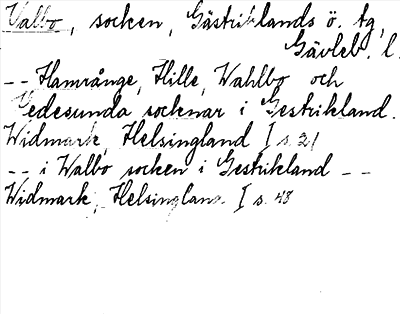 Valbo, socken, Gästriklands ö. tg,
Gävleb. l.
-- Hamrånge, Hille, Wahlbo och
Hedesunda socknar i Gestrikland.
Widmark, Helsingland I s. 21
-- i Walbo socken i Gestrikland --
Widmark, Helsingland I s. 48